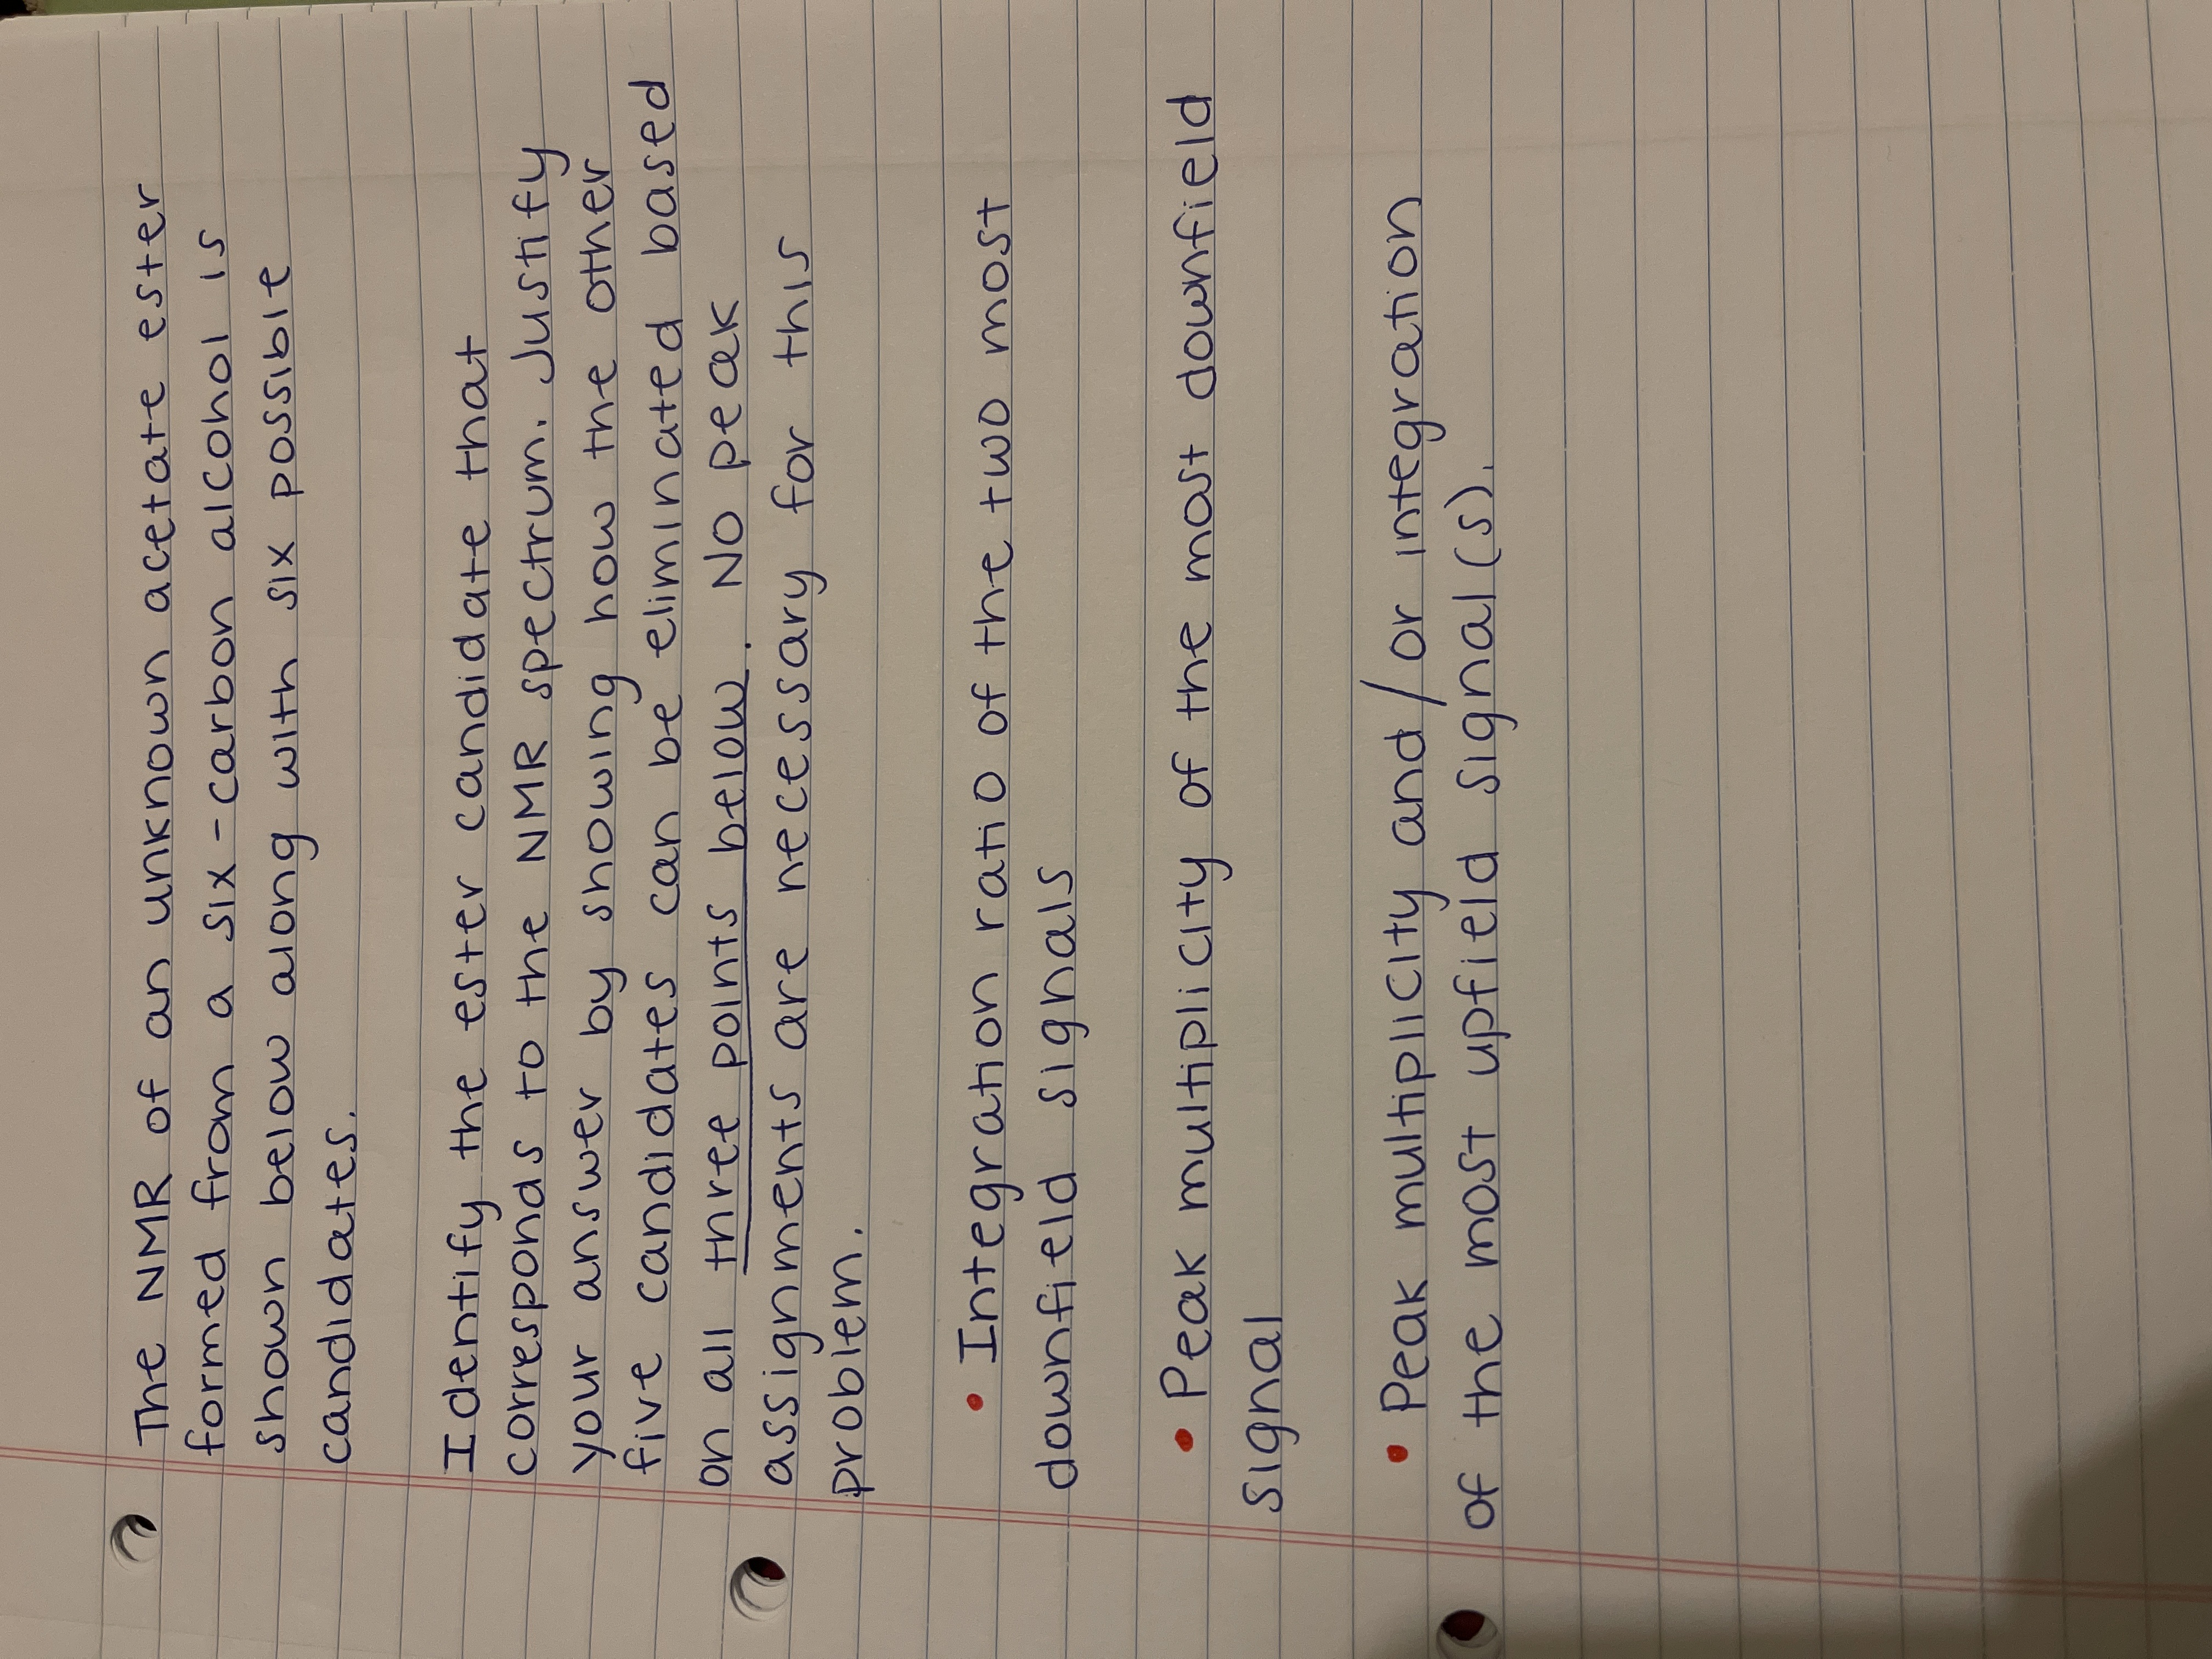 The NMR of an unknown acetate ester
formed from a six-carbon alcohol is
shown below along with six possible
candidates.
Identify the ester candidate that
corresponds to the NMR spectrum. Justify
your answer by showing how the other
five candidates can be eliminated based
on all three points below. No peak
assignments are necessary for this
problem.
• Integration ratio of the two most
downfield signals
• Peak multiplicity of the most downfield
signal
• Peak multiplicity and/or integration
of the most upfield signal(s).